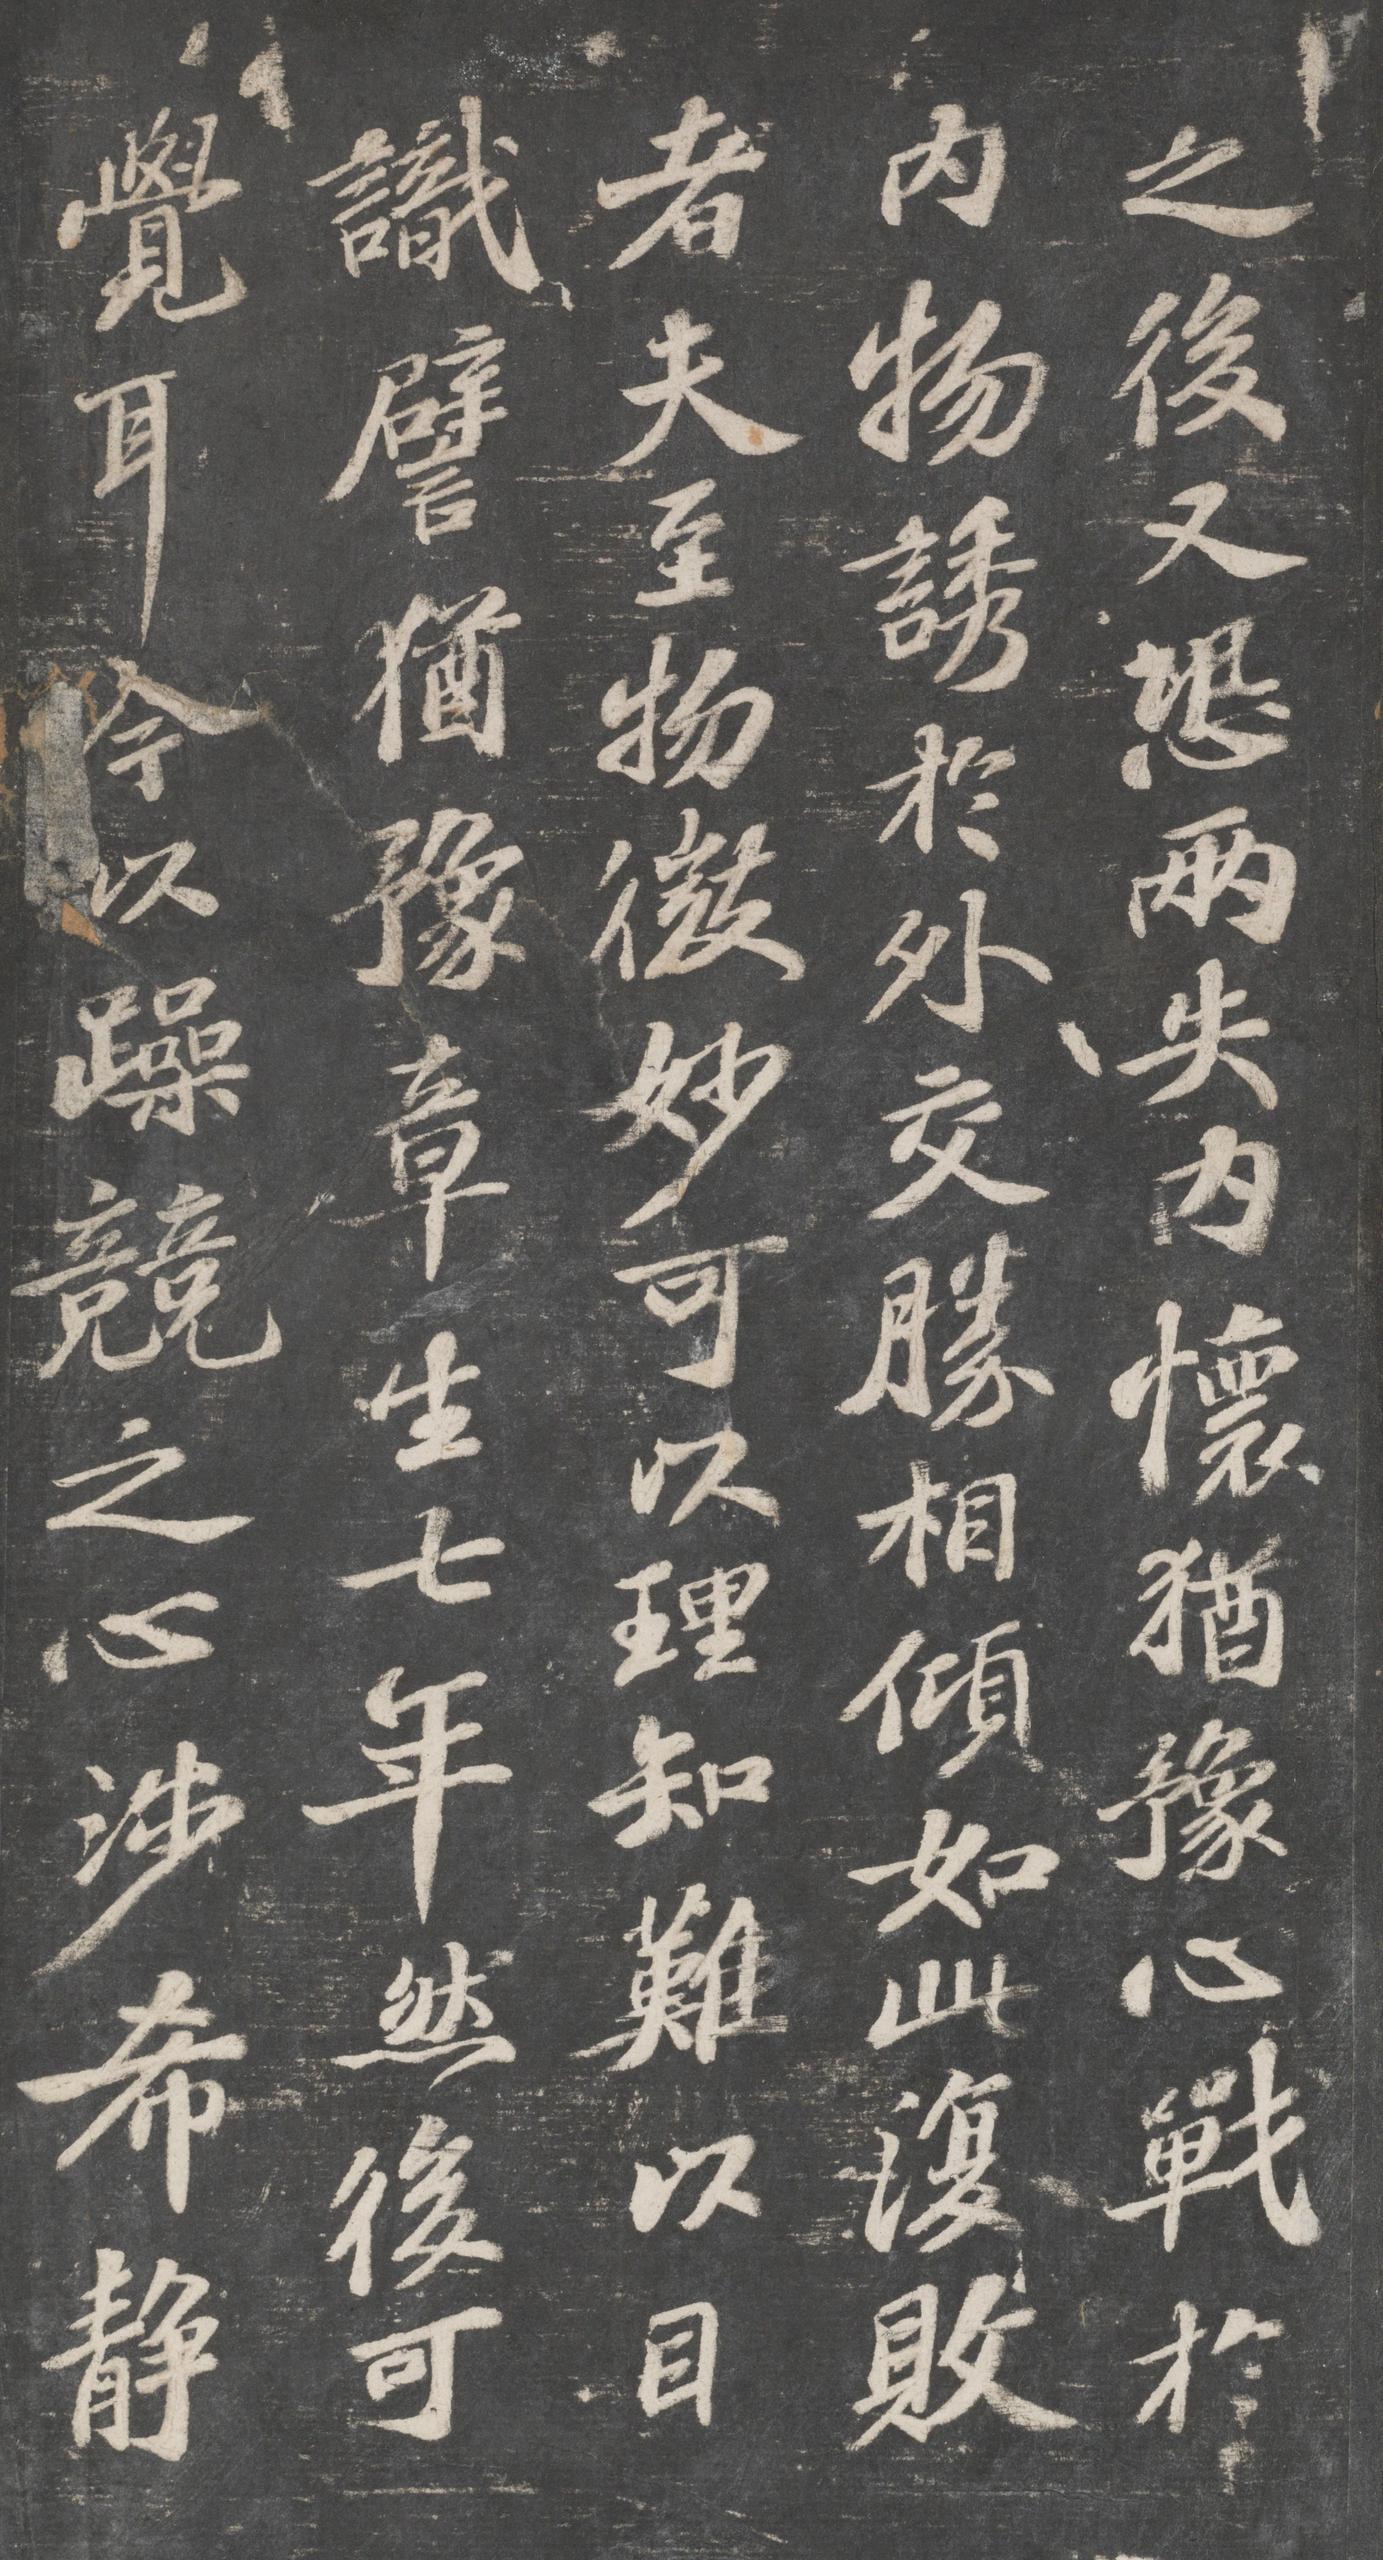 之後又恐兩失内懷猶豫心戰於
内物誘於外交勝相傾如此復敗
者夫至物微妙可以理知難以目
識譬猶豫章生七年然後可
覺耳今以躁競之心涉希静